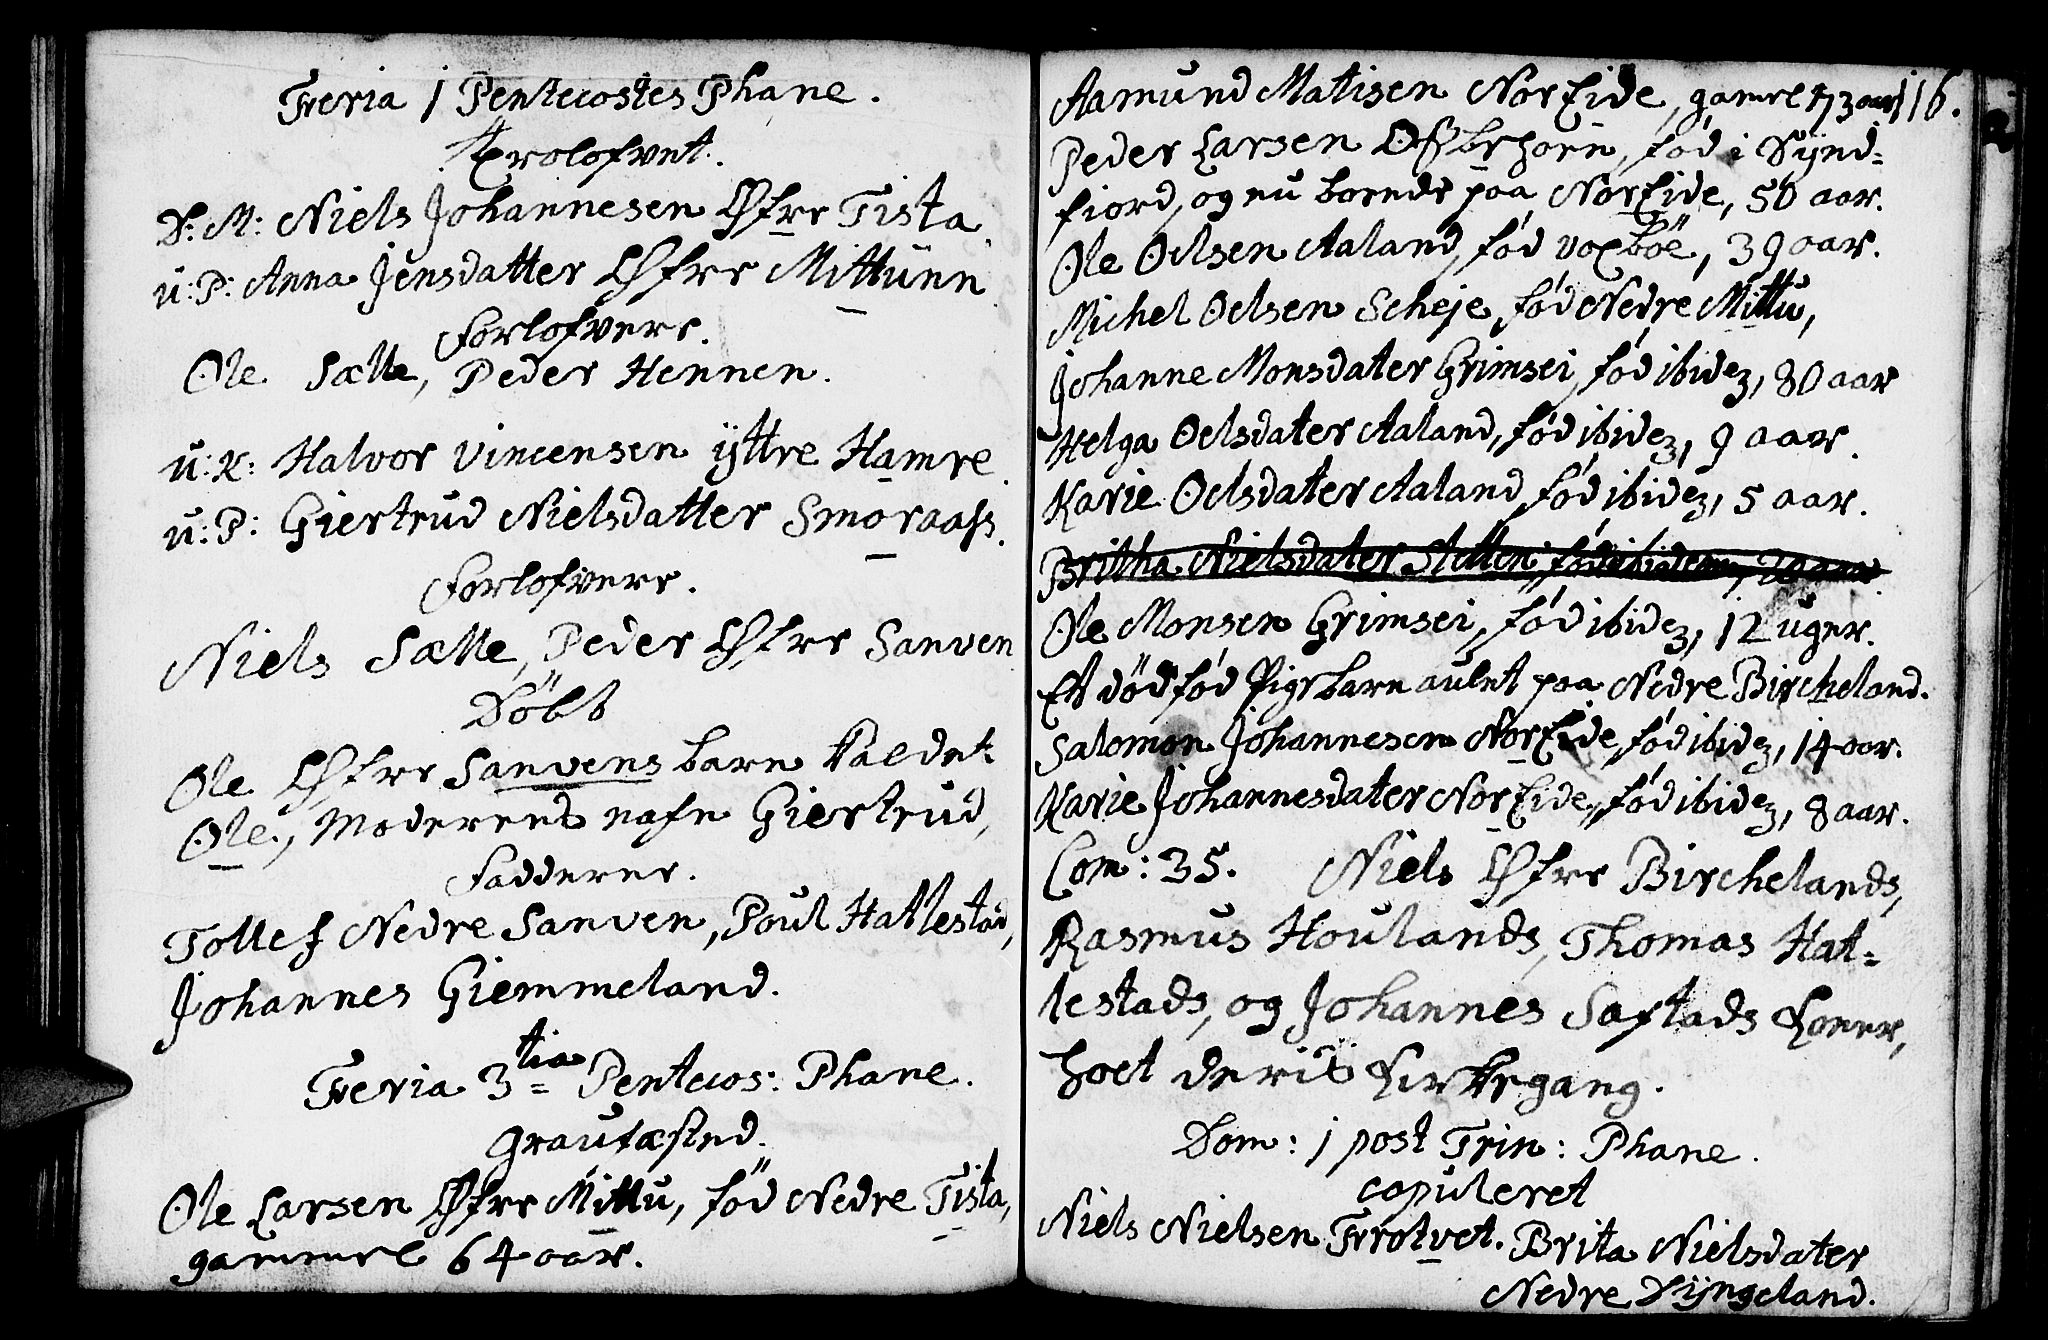 Feria 1 Pentecostes Phane.
Trolofvet.
D: M: Niels Johannesen Øfre Tista
u: P: Anna Jensdatter Øfre Mittunn
Forlofvere.
Ole Sælle, Peder Hennen.
u: K: Halvor Vincensen ÿttre Hamre
u: P: Giertrud Nielsdatter Smoraass.
Forlofvere.
Niels Sælle, Peder Øfre Sanven
Döbt
Ole Øfre Sanvens barn kaldet
Ole, Moderens nafn Giertrud,
Fadderer.
Tollef Nedre Sanven, Poul Hatlestad,
Johannes Giemmeland.
Feria 3tia Pentecos: Phane.
Grafæsted.
Ole Larsen Øfre Mittu, föd Nedre Tista,
gammel 64 aar.
116.
Aamund Matisen Noreide, gamel 73 aar
Peder Larsen, föd i Sÿnd=
fiord, og nu boende paa Noreide, 50 aar.
Ole Oelsen Aaland, föd Voxböe, 39 aar.
Michel Oelsen Scheje, föd Nedre Mittu,
Johanne Monsdater Grimsei, föd ibidem, 80 aar
Helga Oelsdater Aaland, föd ibidem, 9 aar.
Karie Oelsdater Aaland, föd ibidem, 5 aar.
Britha Nielsdater Stetten, föd ibidem, 20 aar.
Ole Monsen Grimsei, föd ibidem, 12 uger.
Et dödföd Pigebarn aulet paa Nedre Bircheland.
Salomon Johannesen Noreide, föd ibidem, 14 aar.
Karie Johannesdater Noreide, föd ibidem, 8 aar.
Com: 35. Niels Øfre Birchelands,
Rasmus Houlands, Thomas Hat=
lestads, og Johannes Saftads koner,
hoet deris kirkegang.
Dom: 1 post Trin: Phane.
Copuleret
Niels Nielsen Frotvet. Brita Nielsdater
Nedre Dÿngeland.